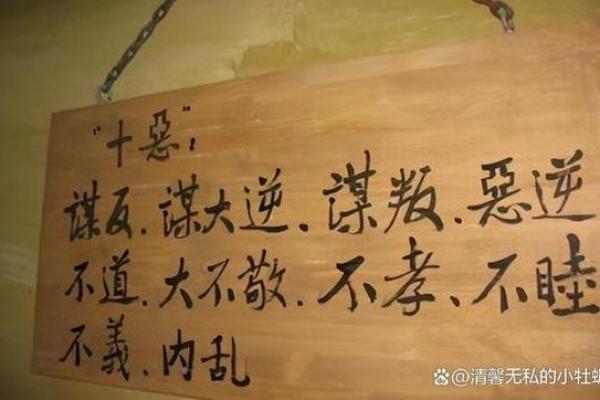 "十惡"：
謀反、謀大逆、謀叛、惡逆
不道、大不敬、不孝、不睦
不義、内乱
@清馨无私的小牡蛎